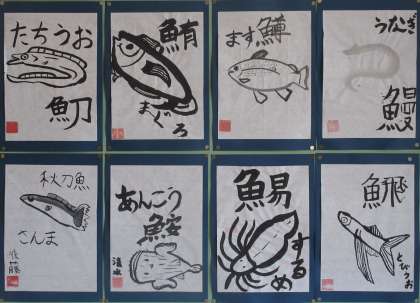 たちうお
魛
鮪
まぐろ
ます 鱒
うなぎ
鰻
秋刀魚
さんま
あんこう
鮟
鯣
するめ
とびうお